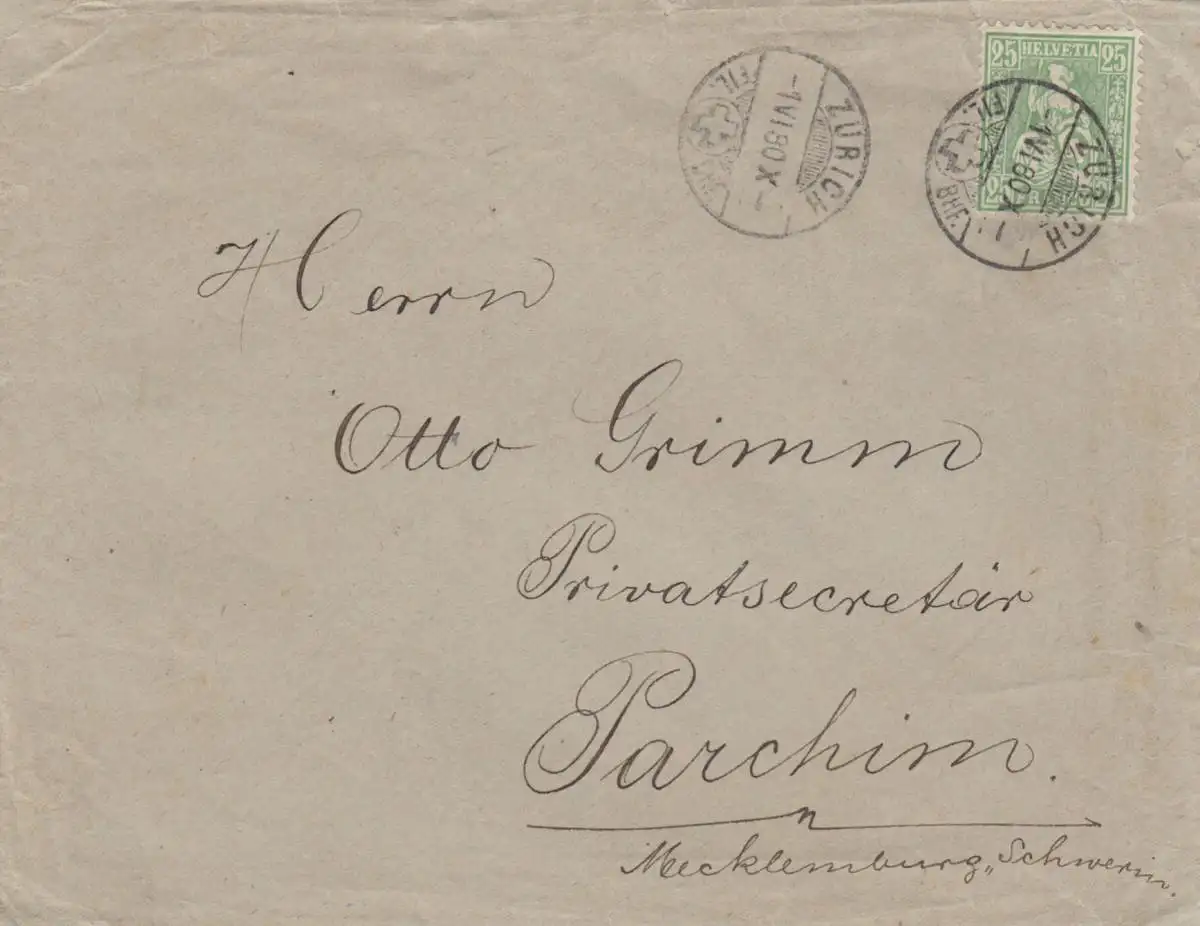 25 HELVETIA 25
ZÜRICH
-1 VI 80 X
FIL.
ZÜRICH
-1 VI 80 X
FIL. BHF.
25
Herrn
Otto Grimm
Privatsecretär
Parchim.
Mecklemburg„Schwerin.